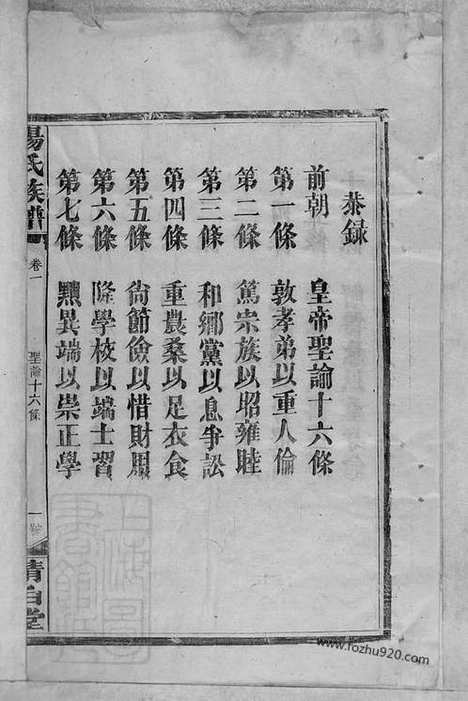 恭録
前朝　皇帝聖諭十六條
第一條　敦孝弟以重人倫
第二條　篤宗族以昭雍睦
第三條　和鄉黨以息爭訟
第四條　重農桑以足衣食
第五條　尙節儉以惜財用
第六條　隆學校以端士習
第七條　黜異端以崇正學
楊氏族譜　卷一　聖諭十六條　一　清白堂
www.fozhu920.com